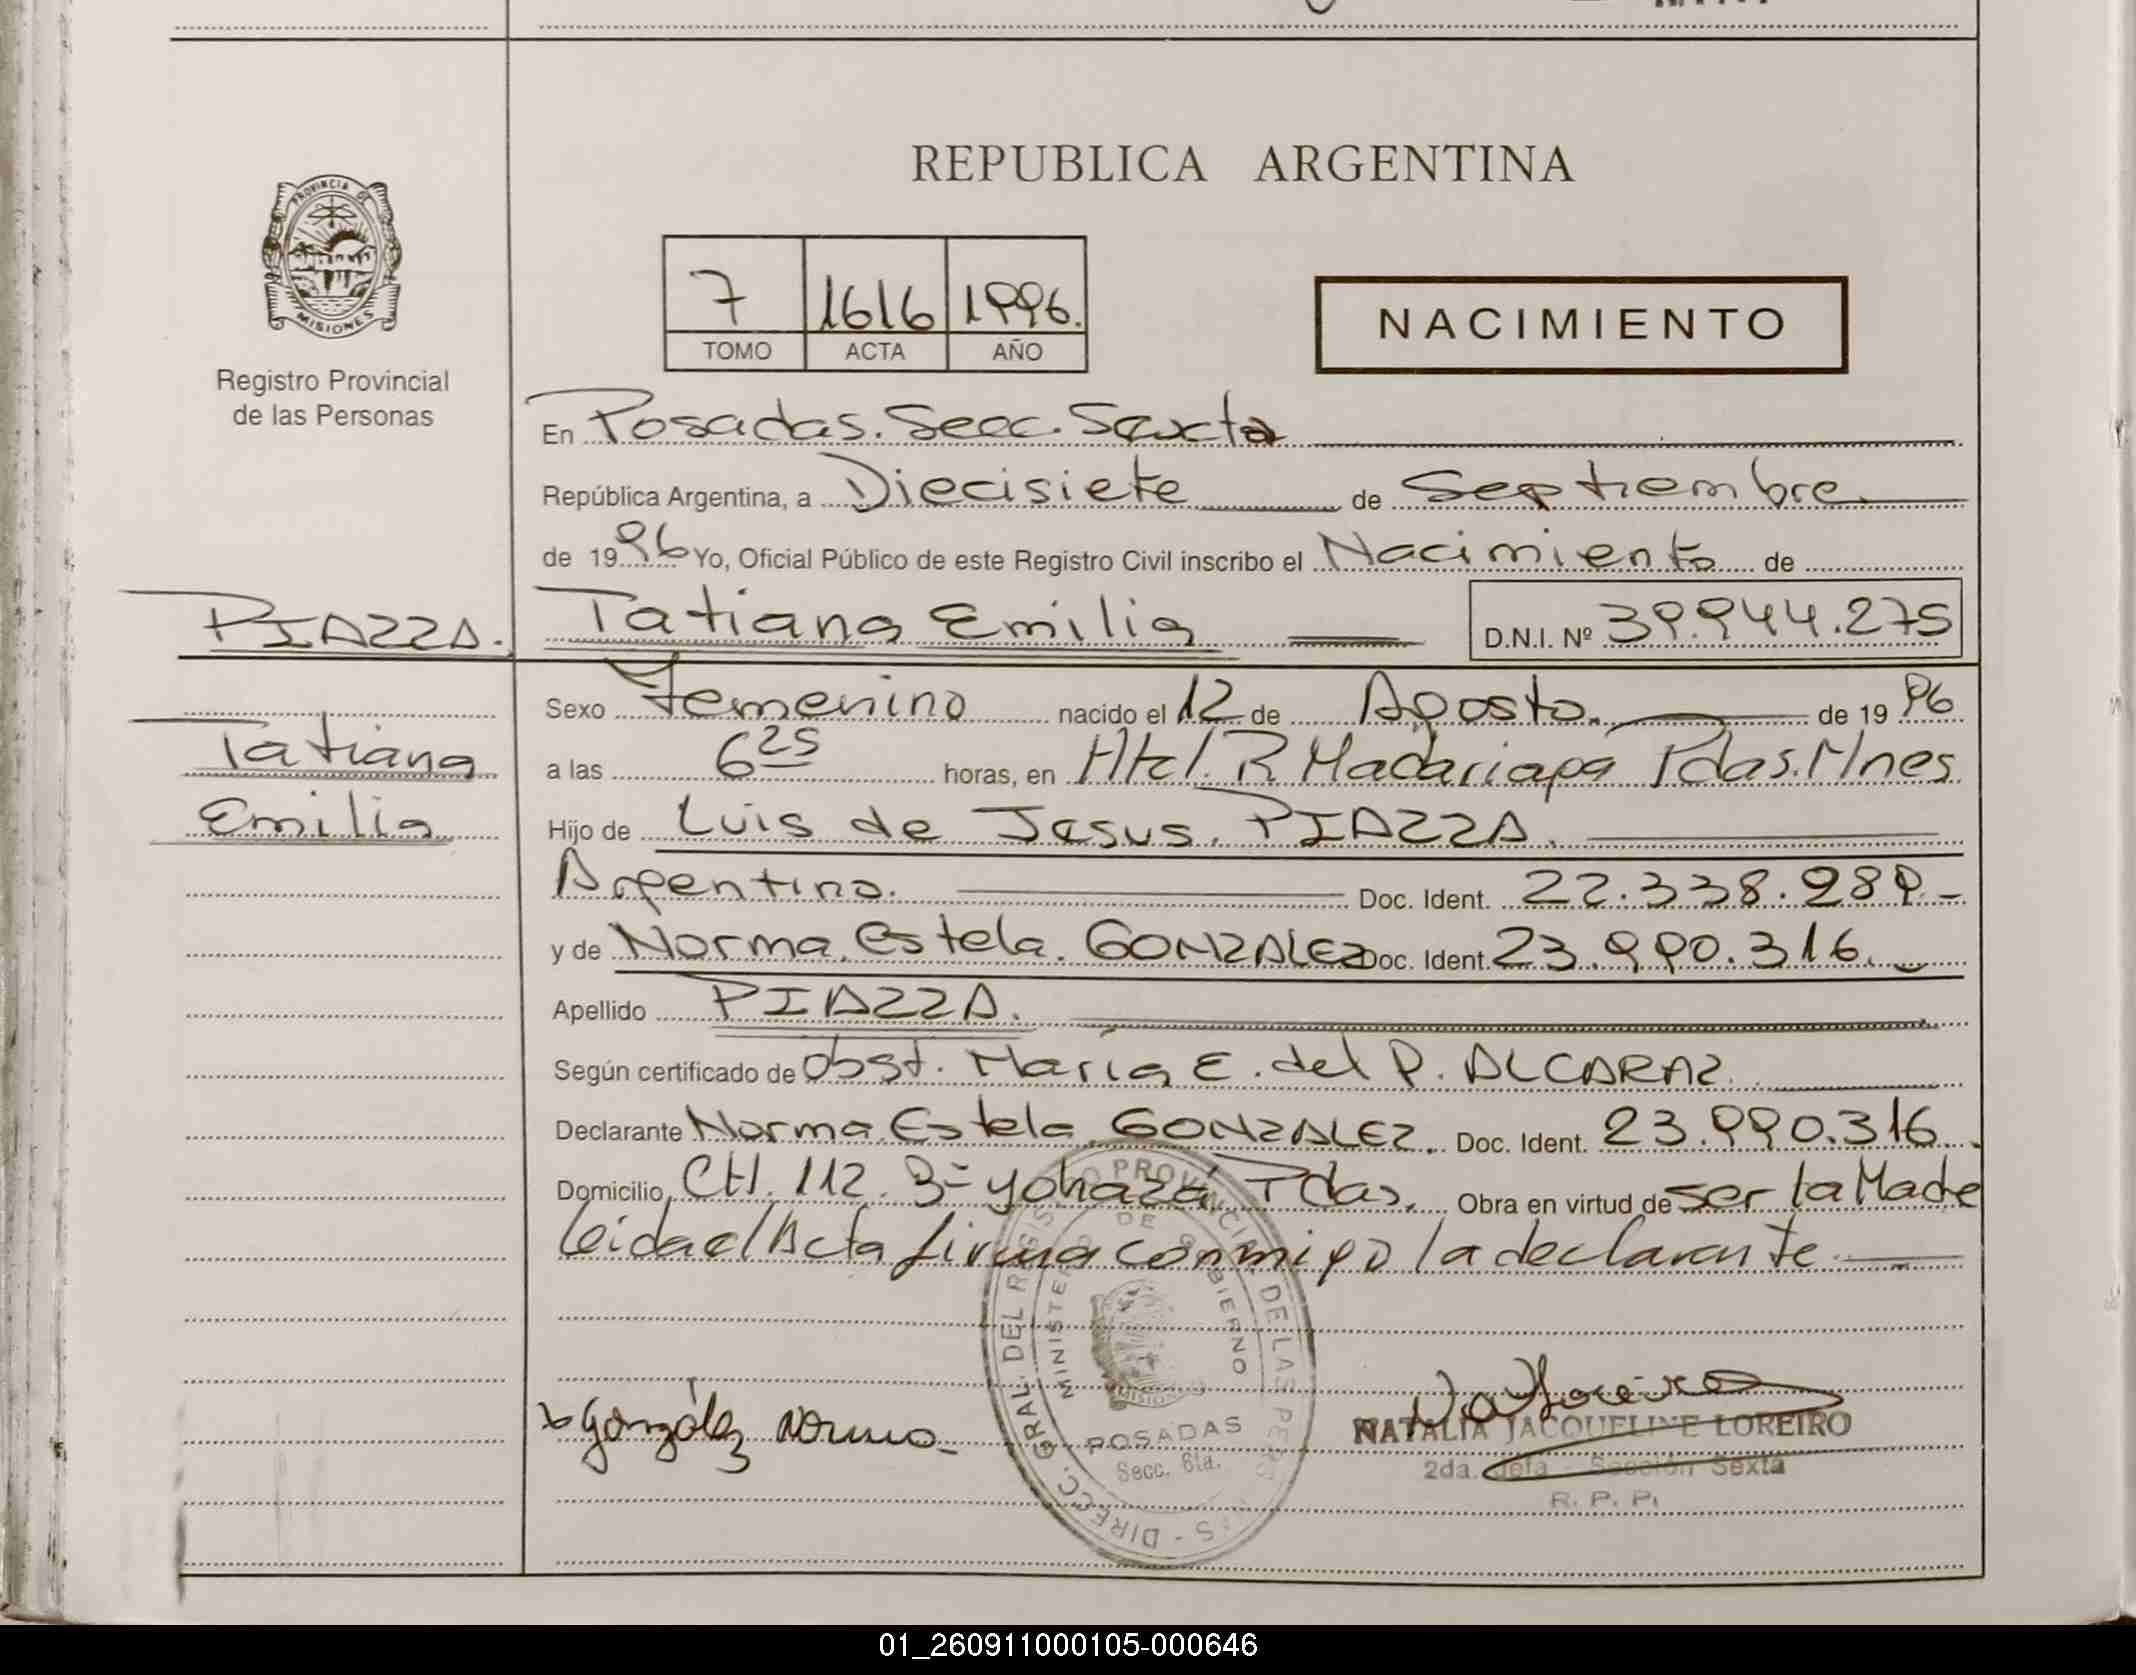 REPUBLICA ARGENTINA
PROVINCIA DE
MISIONES
Registro Provincial
de las Personas
7 1616 1996.
TOMO ACTA AÑO
NACIMIENTO
En Posadas. Secc. Sexta
República Argentina, a Diecisiete de Septiembre
de 1996 Yo, Oficial Público de este Registro Civil inscribo el Nacimiento de
PIAZZA. Tatiana Emilia D.N.I. Nº 39.944.275
Sexo Femenino nacido el 12 de Agosto. de 1996
Tatiana
a las 6 25 horas, en Htel. R Madariaga Pdas. Mnes
Emilia
Hijo de Luis de Jesus. PIAZZA.
Argentino. Doc. Ident. 22.338.989.-
y de Norma. Estela. GONZALEZ Doc. Ident. 23.990.316.
Apellido PIAZZA.
Según certificado de Obst. María E. del P. ALCARAZ
Declarante Norma. Estela GONZALEZ. Doc. Ident. 23.990.316.
Domicilio CH. 112. Bº yohazá Pdas. Obra en virtud de ser la Madre
leida el Acta firma conmigo la declarante
DIRECC. GRAL. DEL REGISTRO PROVINCIAL DE LAS PERSONAS
MINISTERIO DE GOBIERNO
MISIONES
POSADAS
Secc. 6ta.
González Norma
NATALIA JACQUELINE LOREIRO
2da. Jefa - Sección Sexta
R. P. P.
01_260911000105-000646